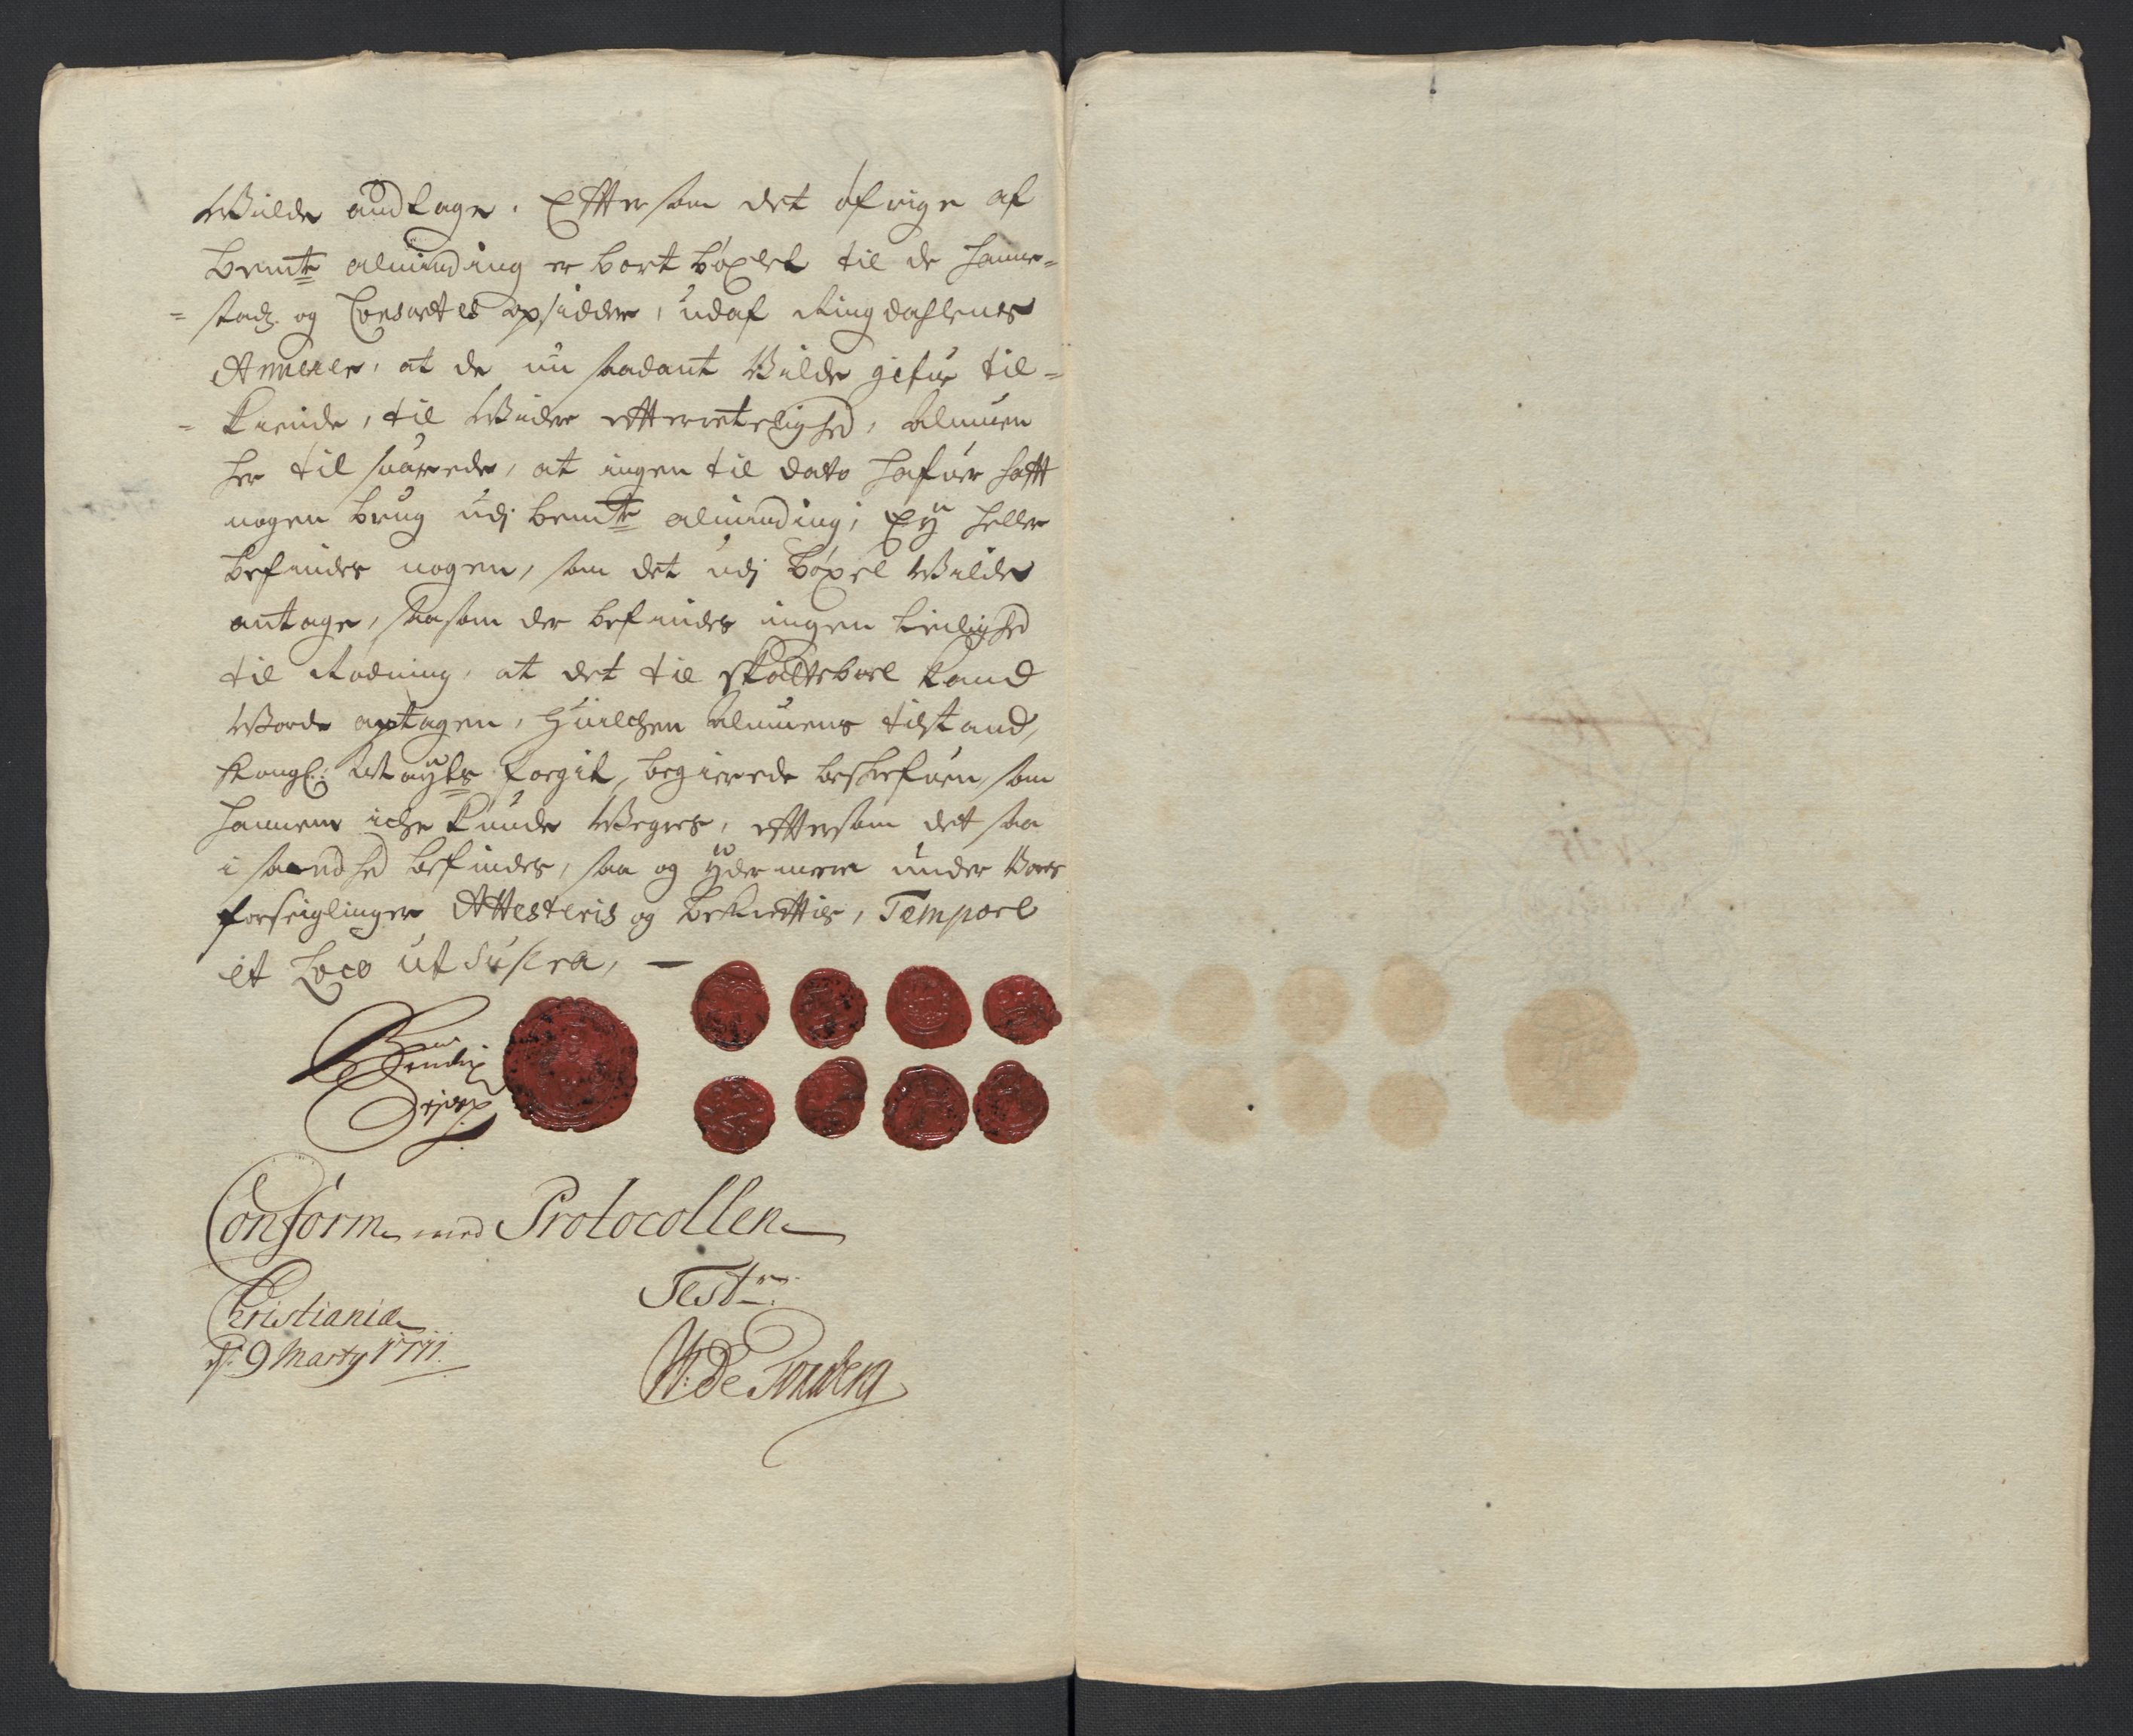 Wilde andtage, Efftersom det öfrige af
bemte alminding er bort böxlet til de Hanne-
-stad og Consortes opsidder, udaf Ringdahlens
Annexe, at de nu saadant Wilde gifue til-
-kiende, til Widere effterretelighed, Almuen
her til suarede, at ingen til dato hafuer hafft
nogen brug udj bemte alminding, Ey heller
befindes nogen, som det udj böxel Wilde
antage, saasom der befindes ingen leilighed
til Rödning, at det til skatteboel kand
Worde optagen, Huilchen almuens tilstand,
Kongl: Mayts foegit, begierede beskrefuen, som
hannem iche kunde Wegres, efftersom det saa
i sandhed befindes, saa og ÿdermere under Vores
forseiglinger Attesteris og bekrefftis, Tempore
et Loco ut Supra,
Bendix
Conform med Protocollen
Christiania Test
d. 9 Marty 1711. W: De Tonsberg